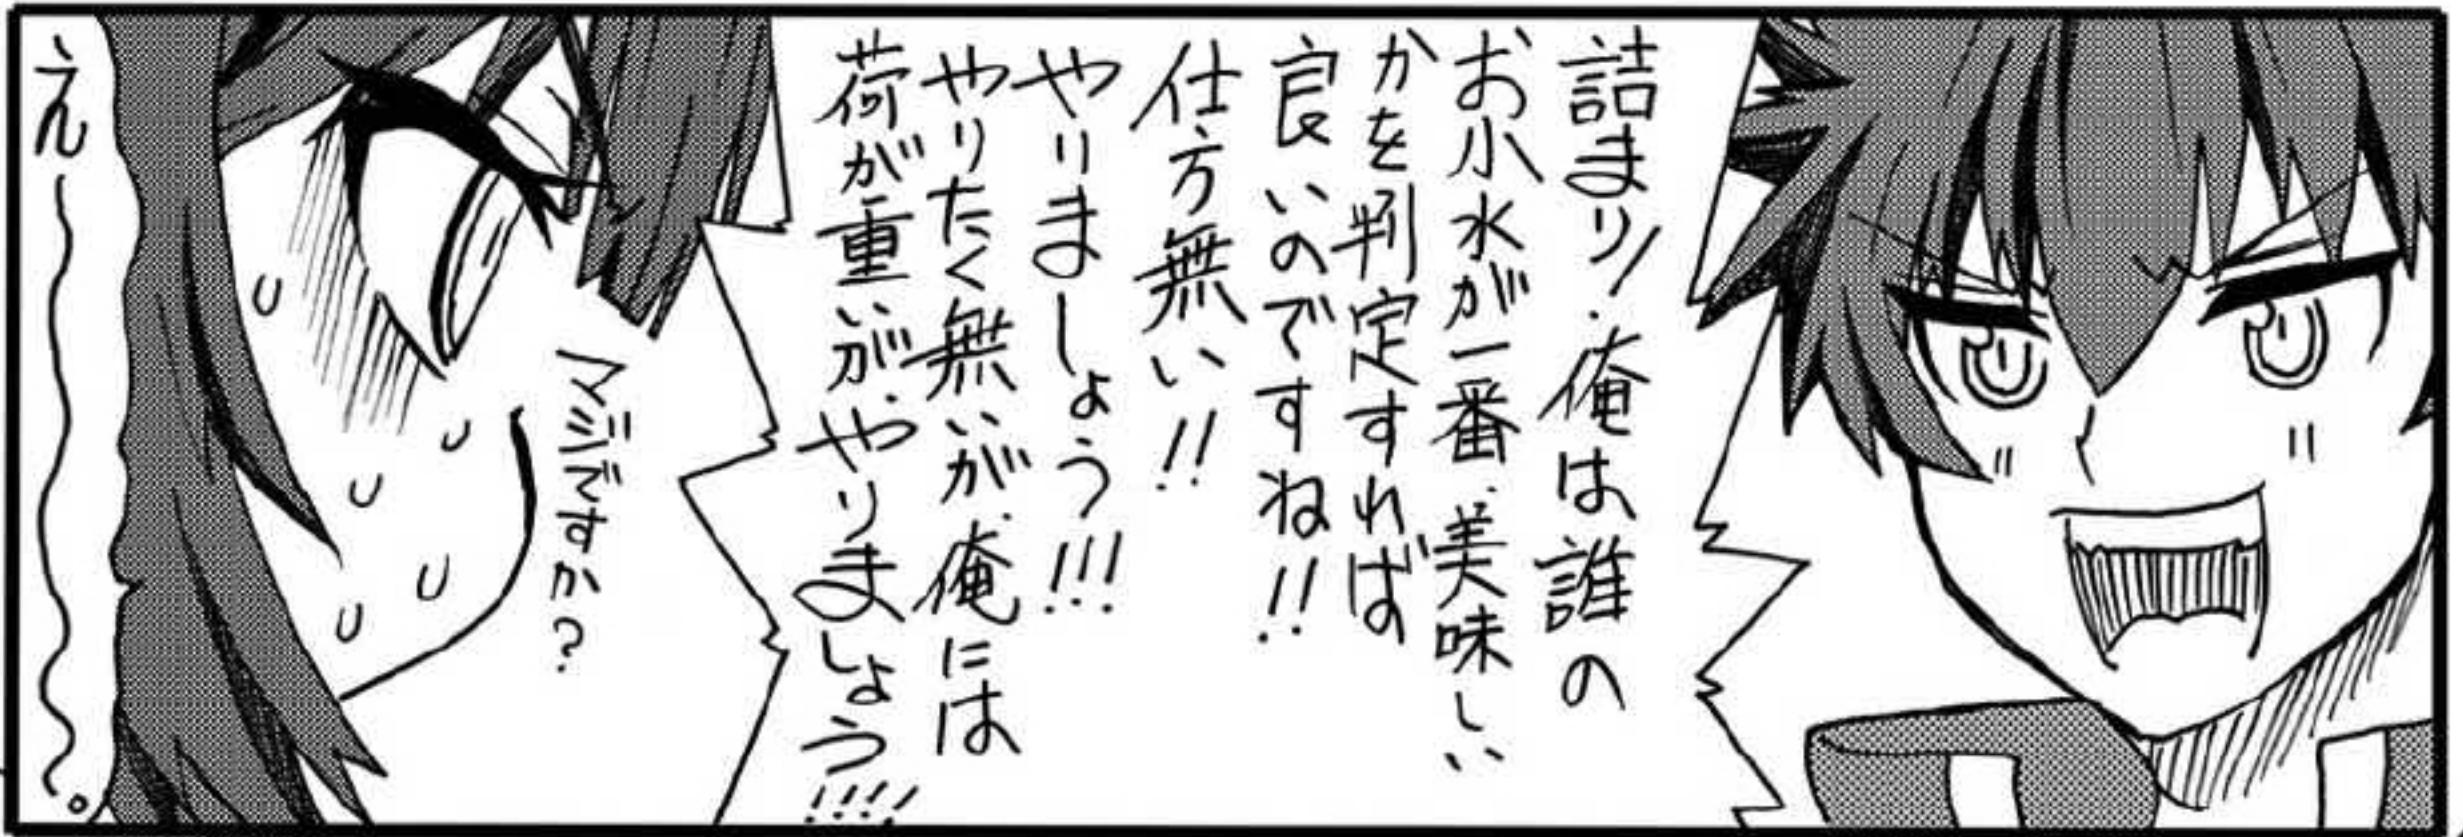 詰まり!俺は誰の
お小水が一番、美味しい
かを判定すれば
良いのですね!!
仕方無い!!
やりましょう!!!
やりたく無いが、俺には
荷が重いが、やりましょう!!!!
マジですか?
えん〜。